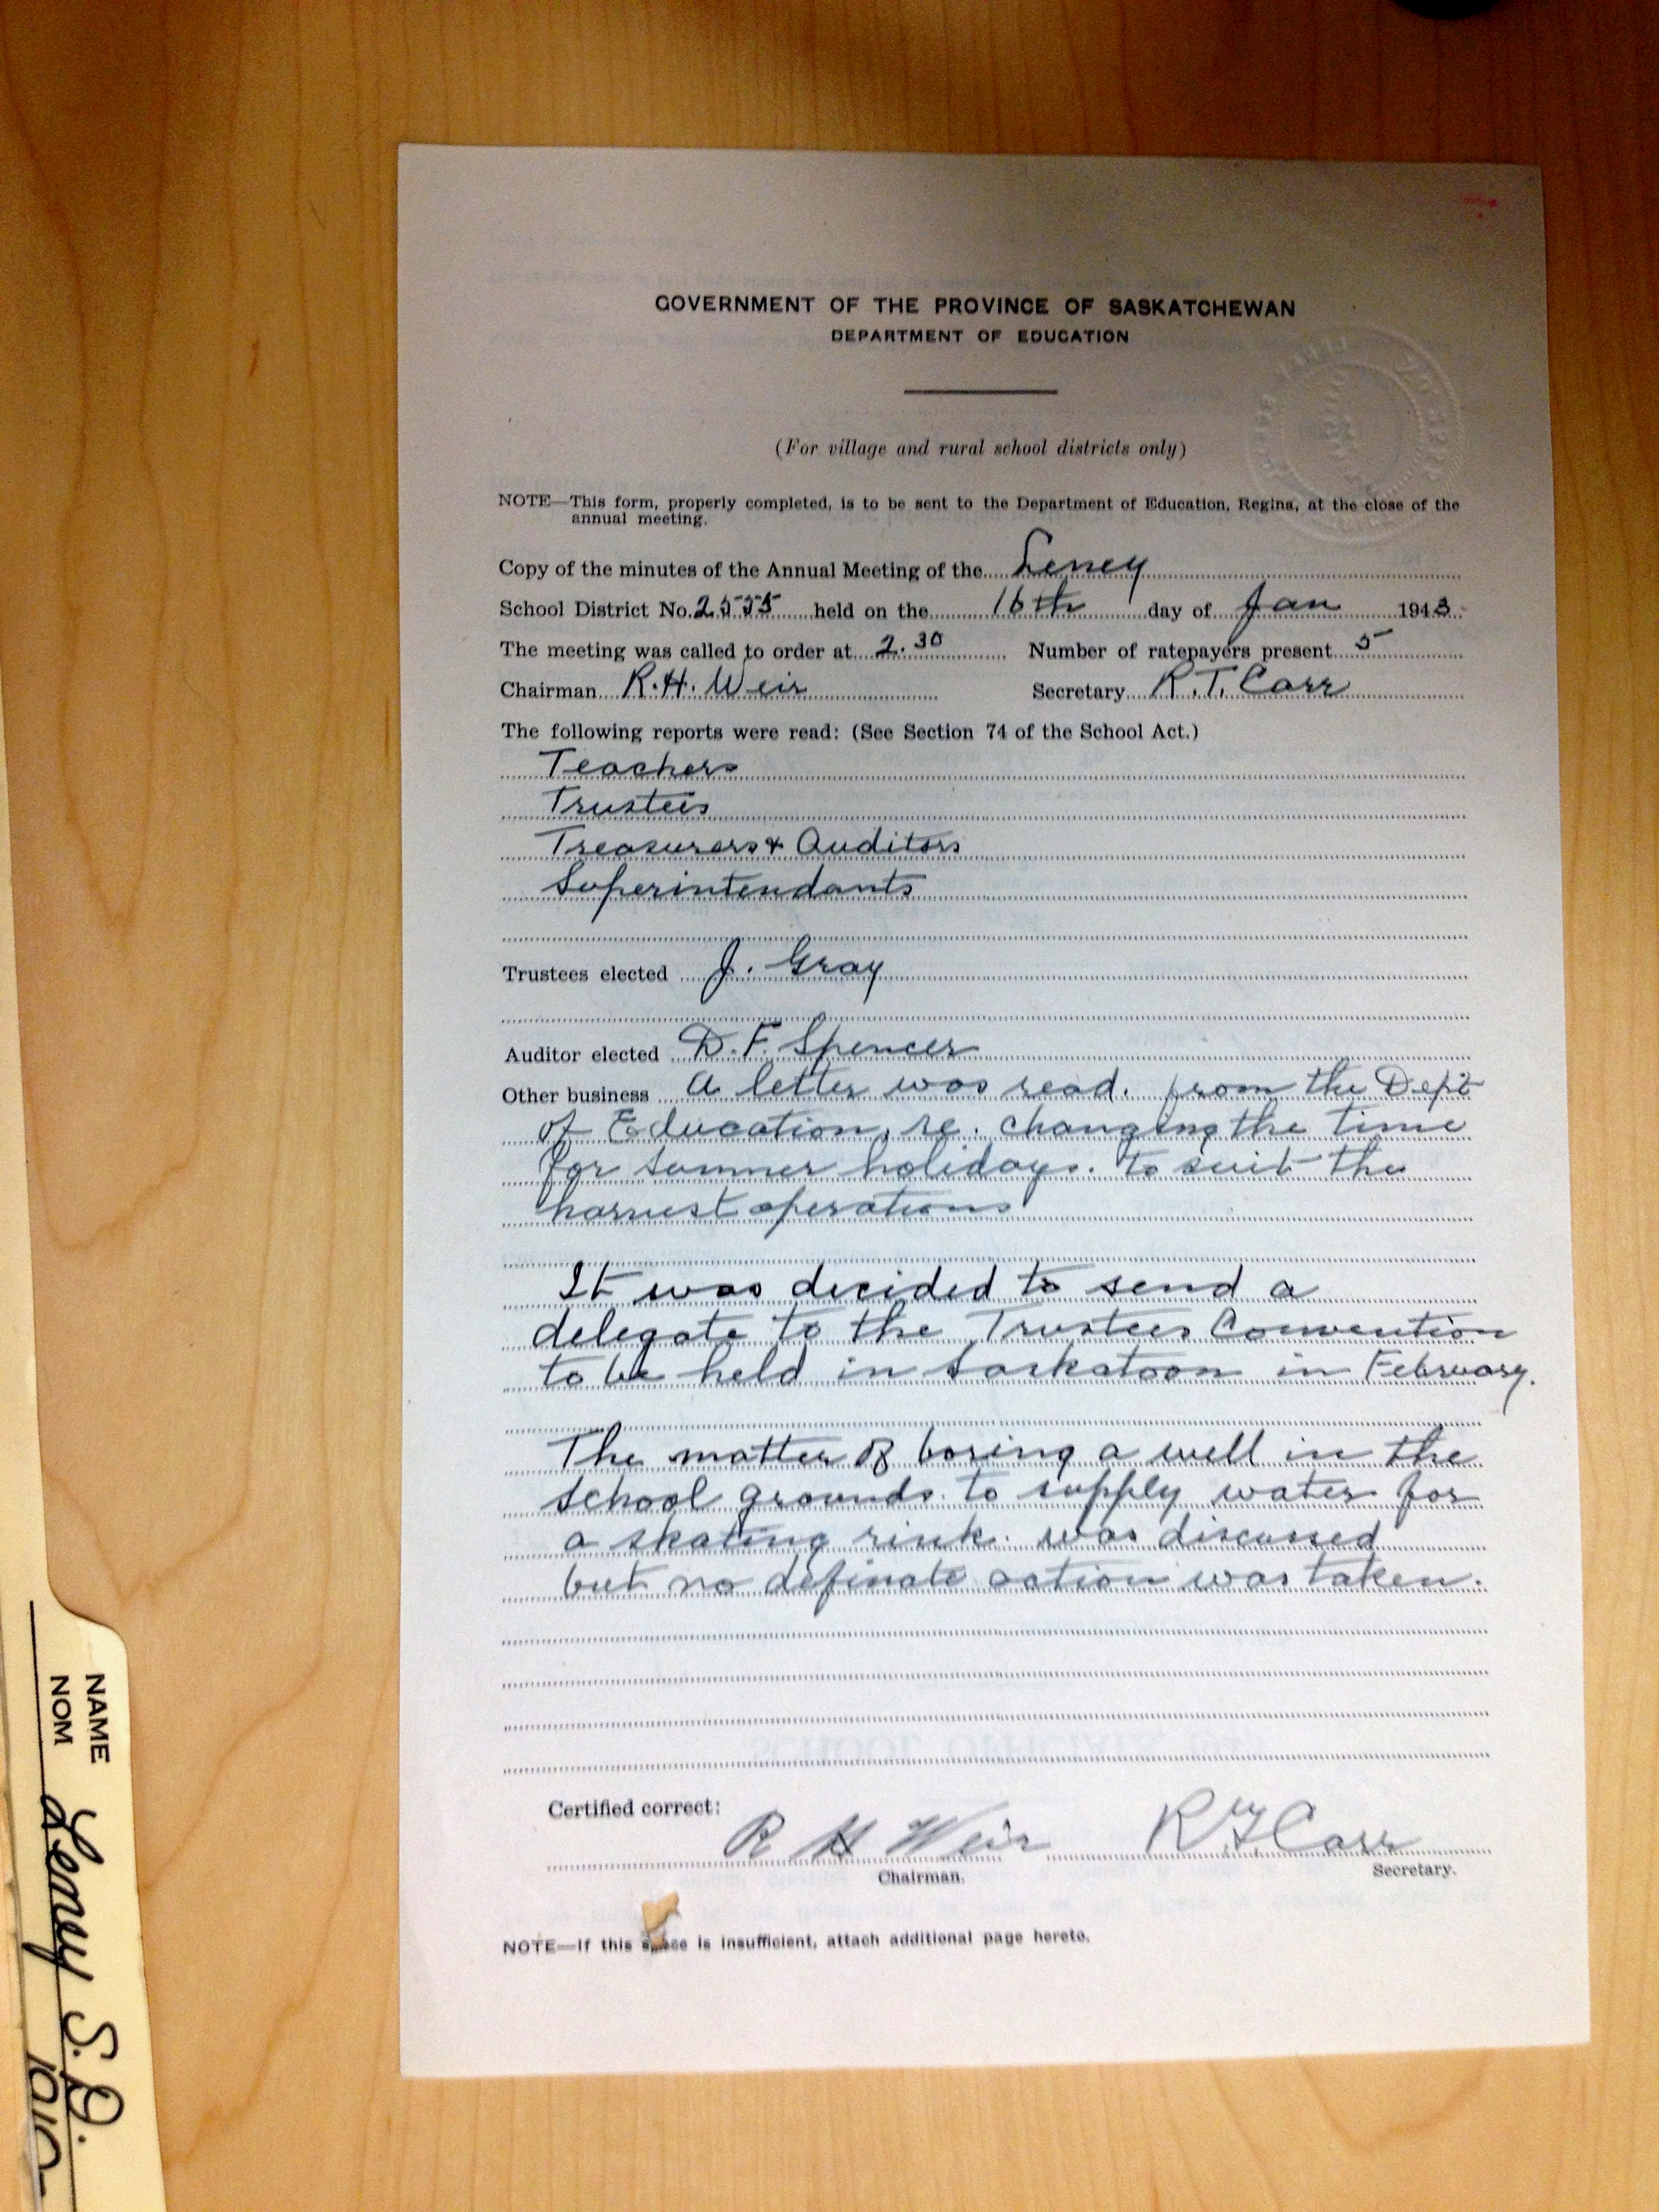 GOVERNMENT OF THE PROVINCE OF SASKATCHEWAN
DEPARTMENT OF EDUCATION
(For village and rural school districts only)
NOTE—This form, properly completed, is to be sent to the Department of Education, Regina, at the close of the
annual meeting.
Copy of the minutes of the Annual Meeting of the Leney
School District No. 2555 held on the 16th day of Jan 1943
The meeting was called to order at 2.30 Number of ratepayers present 5
Chairman R.H. Weir Secretary R.T. Carr
The following reports were read: (See Section 74 of the School Act.)
Teachers
Trustees
Treasurers & Auditors
Superintendants
Trustees elected J. Gray
Auditor elected D.F. Spencer
Other business A letter was read. from the Dept
of Education, re. changing the time
for summer holidays. to suit the
harvest operations
It was decided to send a
delegate to the Trustees Convention
to be held in Saskatoon in February.
The matter of boring a well in the
school grounds to supply water for
a skating rink. was discussed
but no definate action was taken.
Certified correct:
R H Weir R T Carr
Chairman. Secretary.
NOTE—If this space is insufficient, attach additional page hereto.
NAME
NOM
Leney S.D.